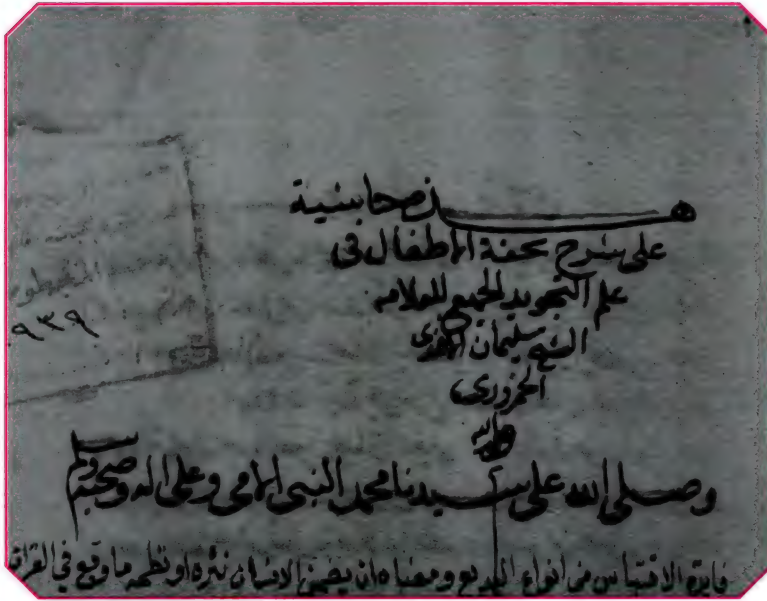 هذه حاشية
على شرح تحفة الاطفال فى
علم التجويد الجميع للعلامه
الشيخ سليمان
الجمزورى
وصلى الله على سيدنا محمد النبى الامى وعلى اله وصحبه وسلم
فايدة الاقتباس من انواع البديع ومعناه ان يضمن الانسان نثره او نظمه ما وقع في القران
المخطو
٩٣٩